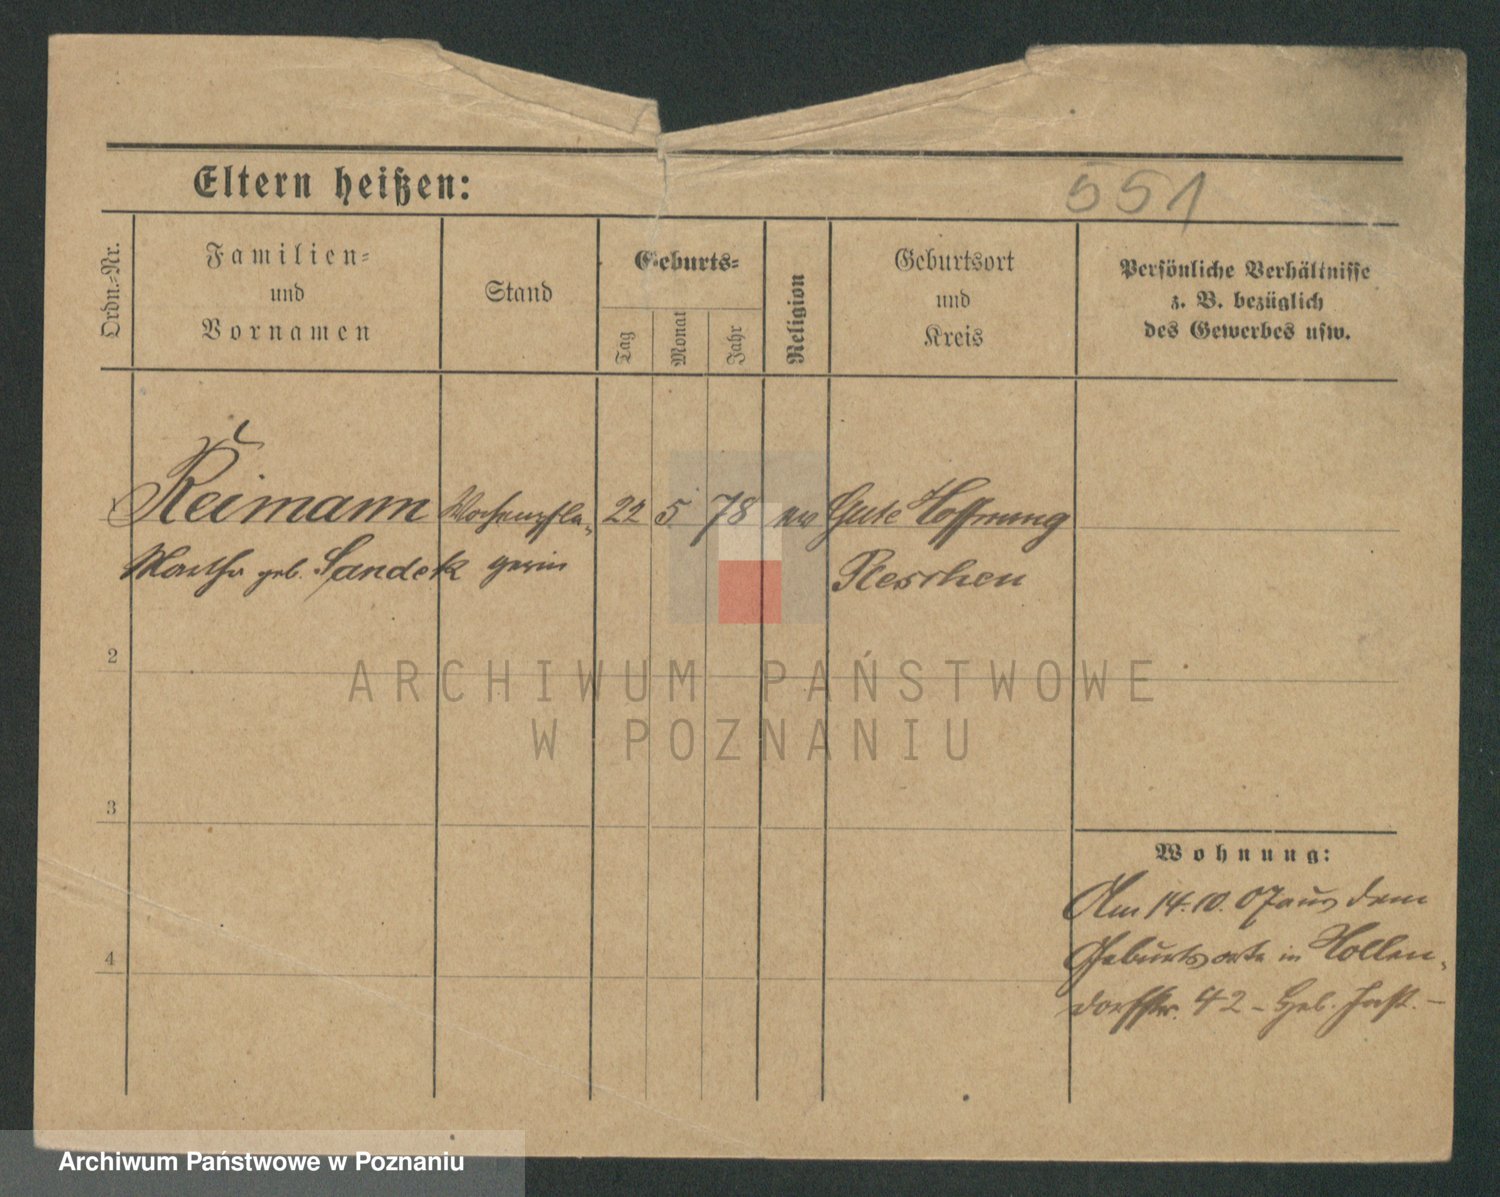 Eltern heißen:
551
Ordn.-Nr.
Familien-
und
Vornamen
Stand
Geburts-
Tag
Monat
Jahr
Religion
Geburtsort
und
Kreis
Persönliche Verhältnisse
z. B. bezüglich
des Gewerbes usw.
Reimann Wochenpfle- 22 5 78 ev Gute Hoffnung
Martha geb. Sandek gerin Pleschen
2
ARCHIWUM PAŃSTWOWE
W POZNANIU
3
Wohnung:
Am 14.10.07 aus dem
4
Geburtsorte in Hollen-
dorfstr. 42 – Heb. Inst. –
Archiwum Państwowe w Poznaniu